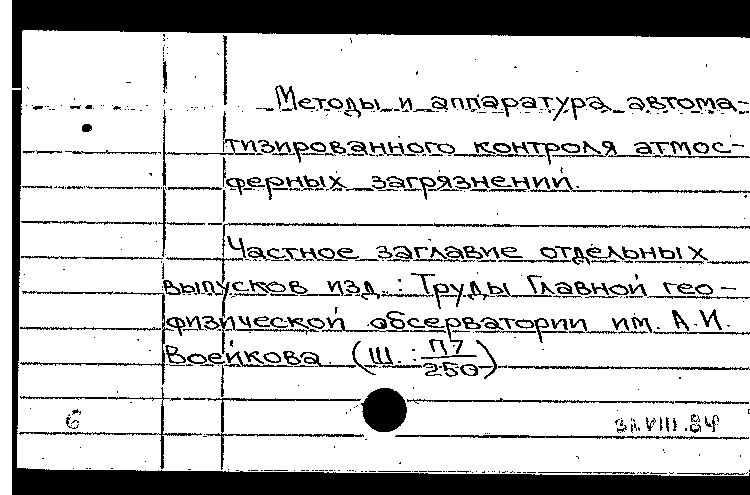 Методы и аппаратура автома-
тизированного контроля атмос-
ферных загрязнений.
Частное заглавие отдельных
выпусков изд.: Труды Главной гео-
физической обсерватории им. А.И.
Воейкова. (Ш.: П7/250)
6 31.VIII.84